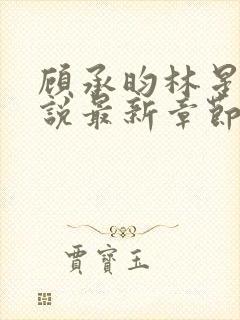 顾承昀林星
說最新章節
賈寶玉